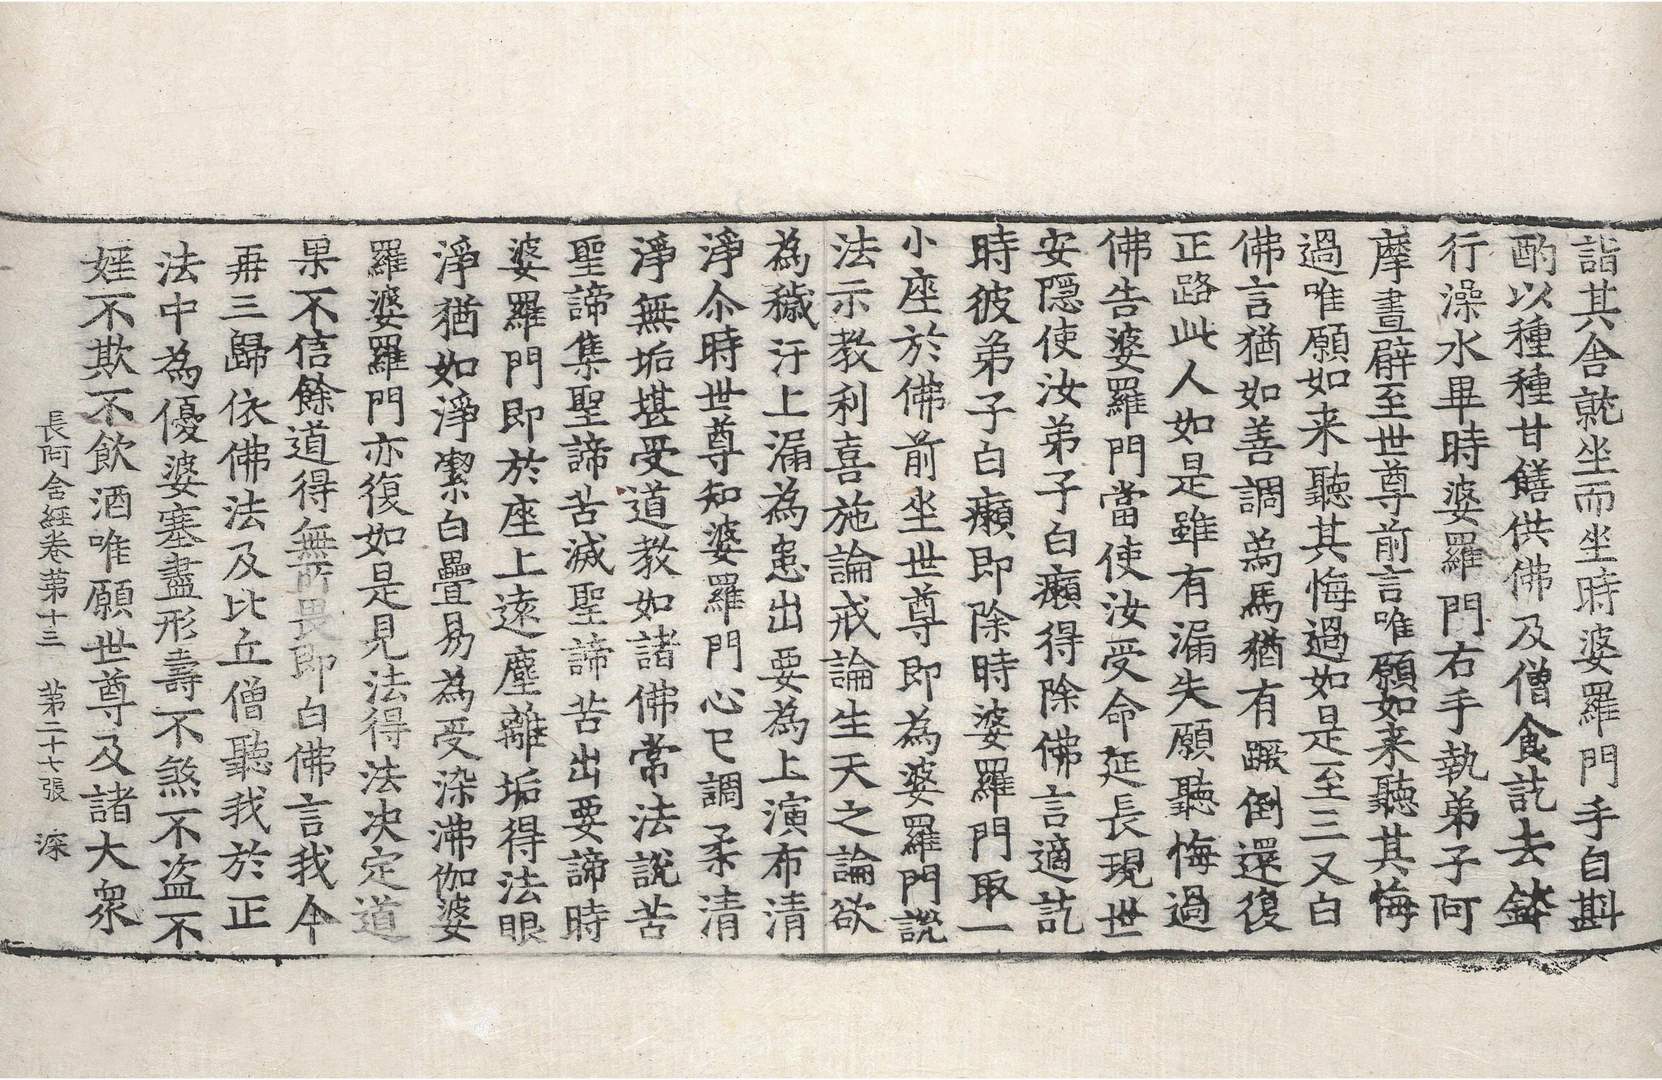 詣其舍就坐而坐時婆羅門手自斟
酌以種種甘饍供佛及僧食訖去鉢
行澡水畢時婆羅門右手執弟子阿
摩晝臂至世尊前言唯願如来聽其悔
過唯願如来聽其悔過如是至三又白
佛言猶如善調為馬猶有蹶倒還復
正路此人如是雖有漏失願聽悔過
佛告婆羅門當使汝受命延長現世
安隠使汝弟子白癩得除佛言適訖
時彼弟子白癩即除時婆羅門取一
小座於佛前坐世尊即為婆羅門說
法示教利喜施論戒論生天之論欲
為穢汙上漏為患出要為上演布清
淨尒時世尊知婆羅門心已調柔清
淨無垢堪受道教如諸佛常法說苦
聖諦集聖諦苦滅聖諦苦出要諦時
婆羅門即於座上遠塵離垢得法眼
淨猶如淨潔白疊易為受染沸伽婆
羅婆羅門亦復如是見法得法决定道
果不信餘道得無所畏即白佛言我今
再三歸依佛法及比丘僧聽我於正
法中為優婆塞盡形壽不煞不盗不
婬不欺不飲酒唯願世尊及諸大衆
長阿含經卷苐十三　苐二十七張　深